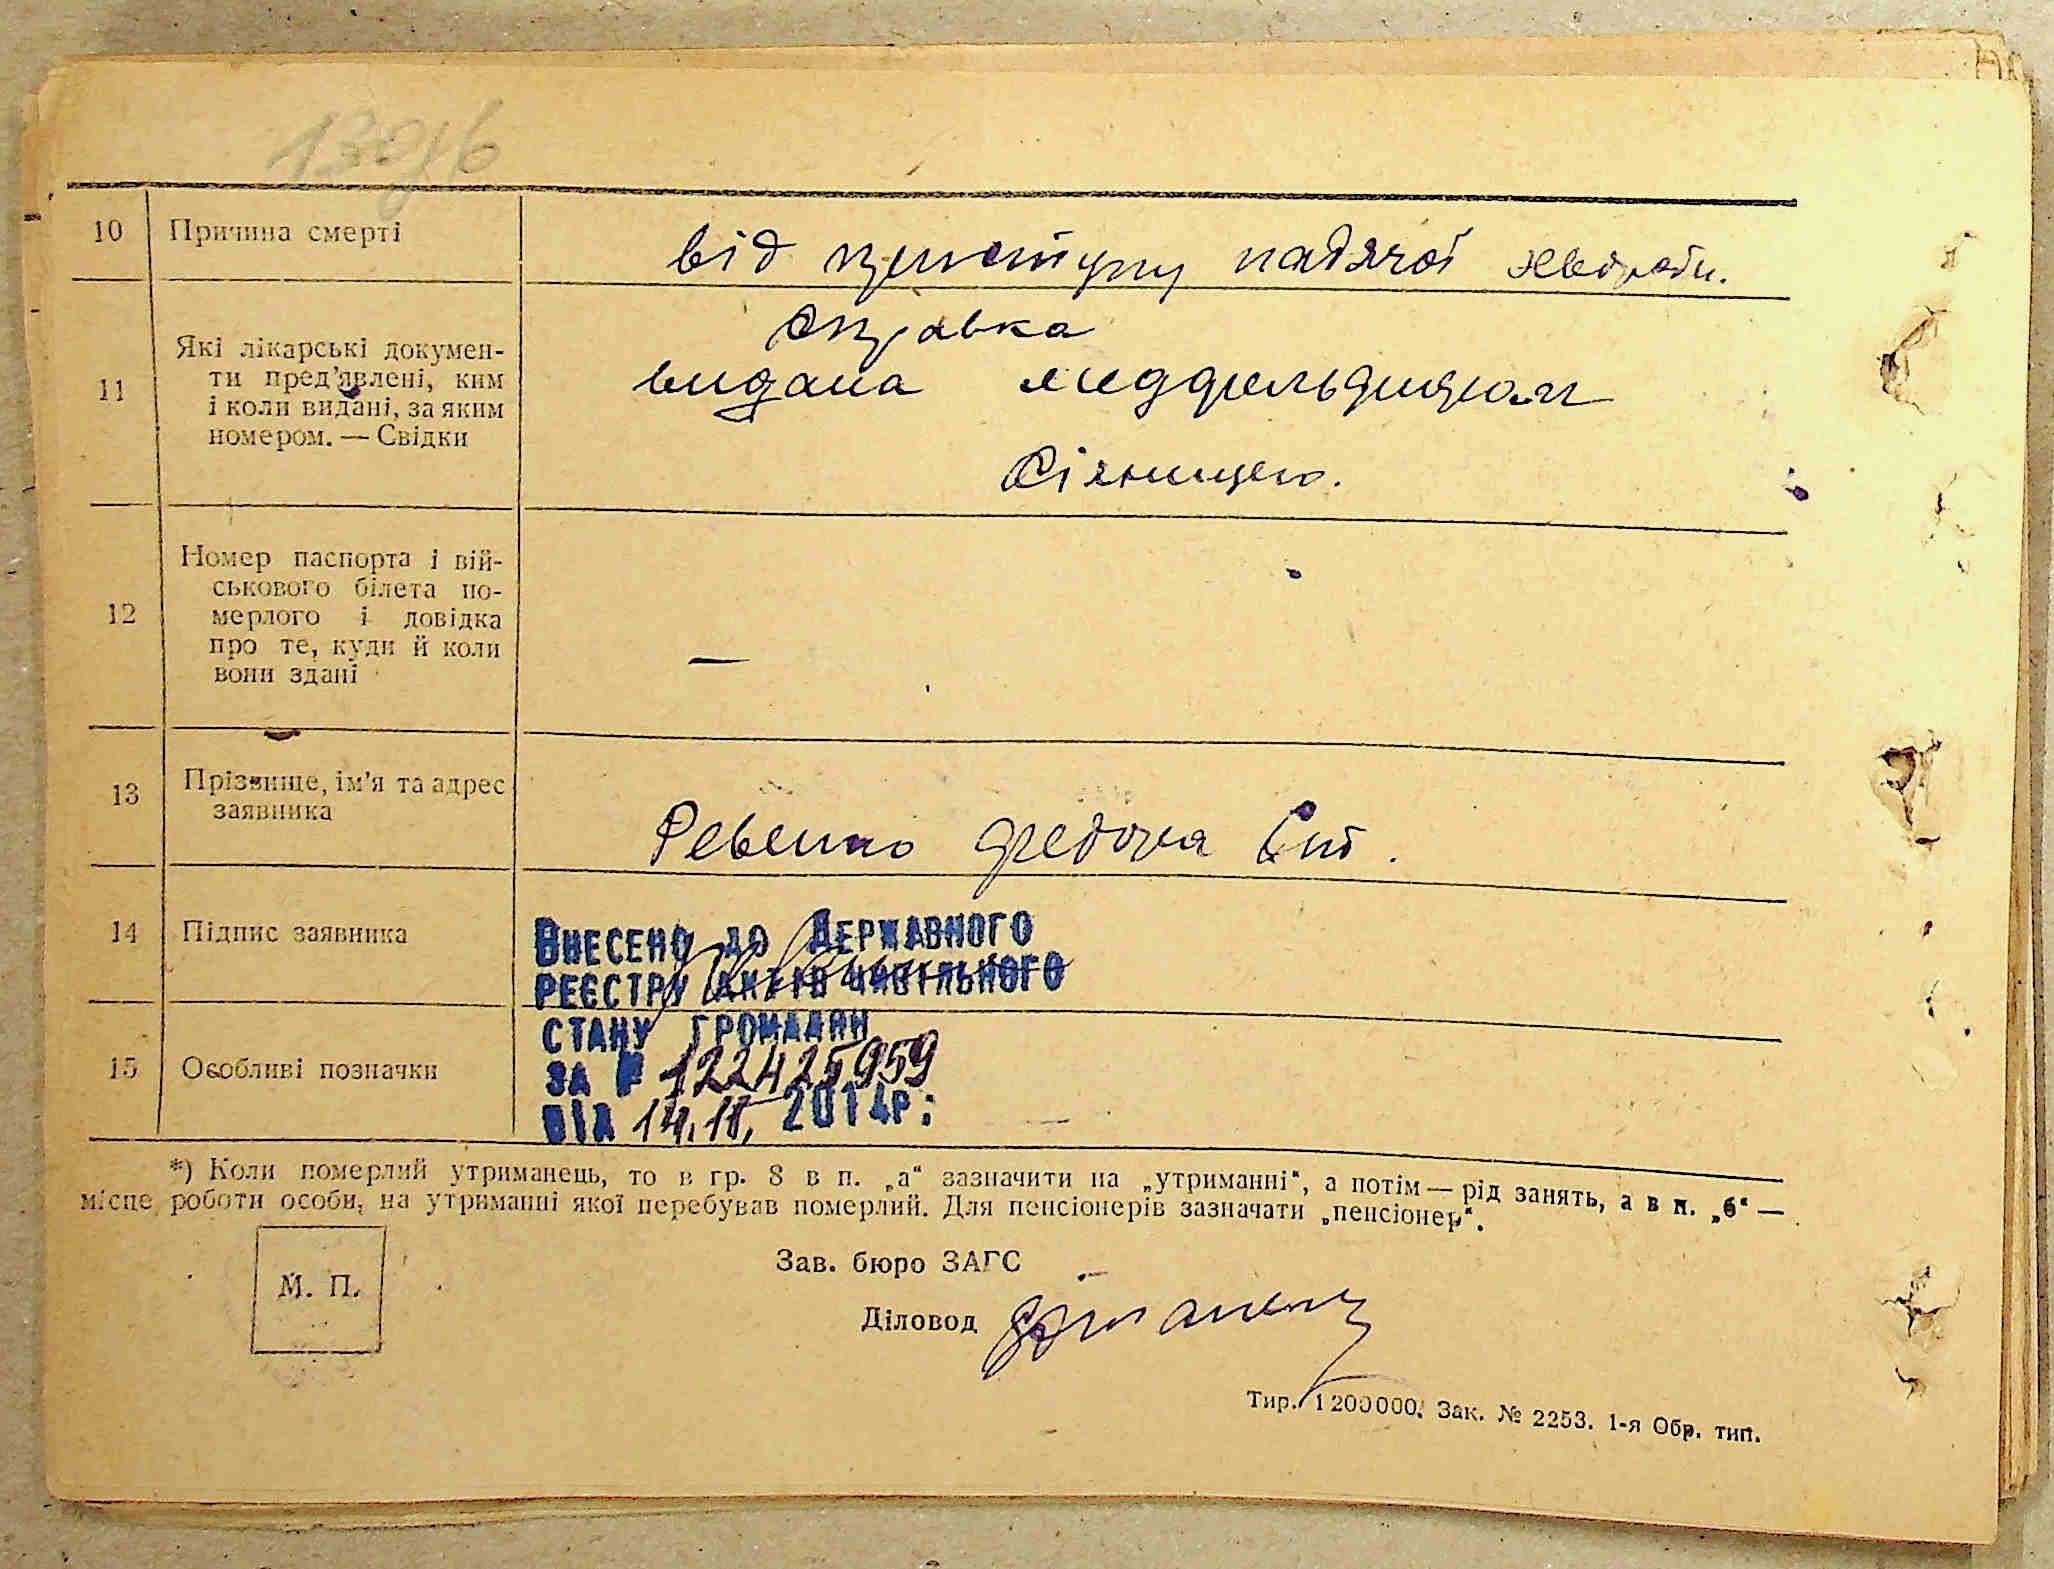 10 Причина смерті
від приступу падячої хвороби.
11 Які лікарські докумен-
ти пред'явлені, ким
і коли видані, за яким
номером. — Свідки
справка
видана медфельдшером
12 Номер паспорта і вій-
ськового білета по-
мерлого і довідка
про те, куди й коли
вони здані
—
13 Прізвище, ім'я та адрес
заявника
Ревенко Федора
14 Підпис заявника
Внесено до Державного
реєстру актів цивільного
стану громадян
за № 122425959
15 Особливі позначки
від 14.11. 2014р:
*) Коли померлий утриманець, то в гр. 8 в п. „а“ зазначити на „утриманні“, а потім — рід занять, а в п. „б“ —
місце роботи особи, на утриманні якої перебував померлий. Для пенсіонерів зазначати „пенсіонер“.
М. П.
Зав. бюро ЗАГС
Діловод
Тир. 1200000. Зак. № 2253. 1-я Обр. тип.